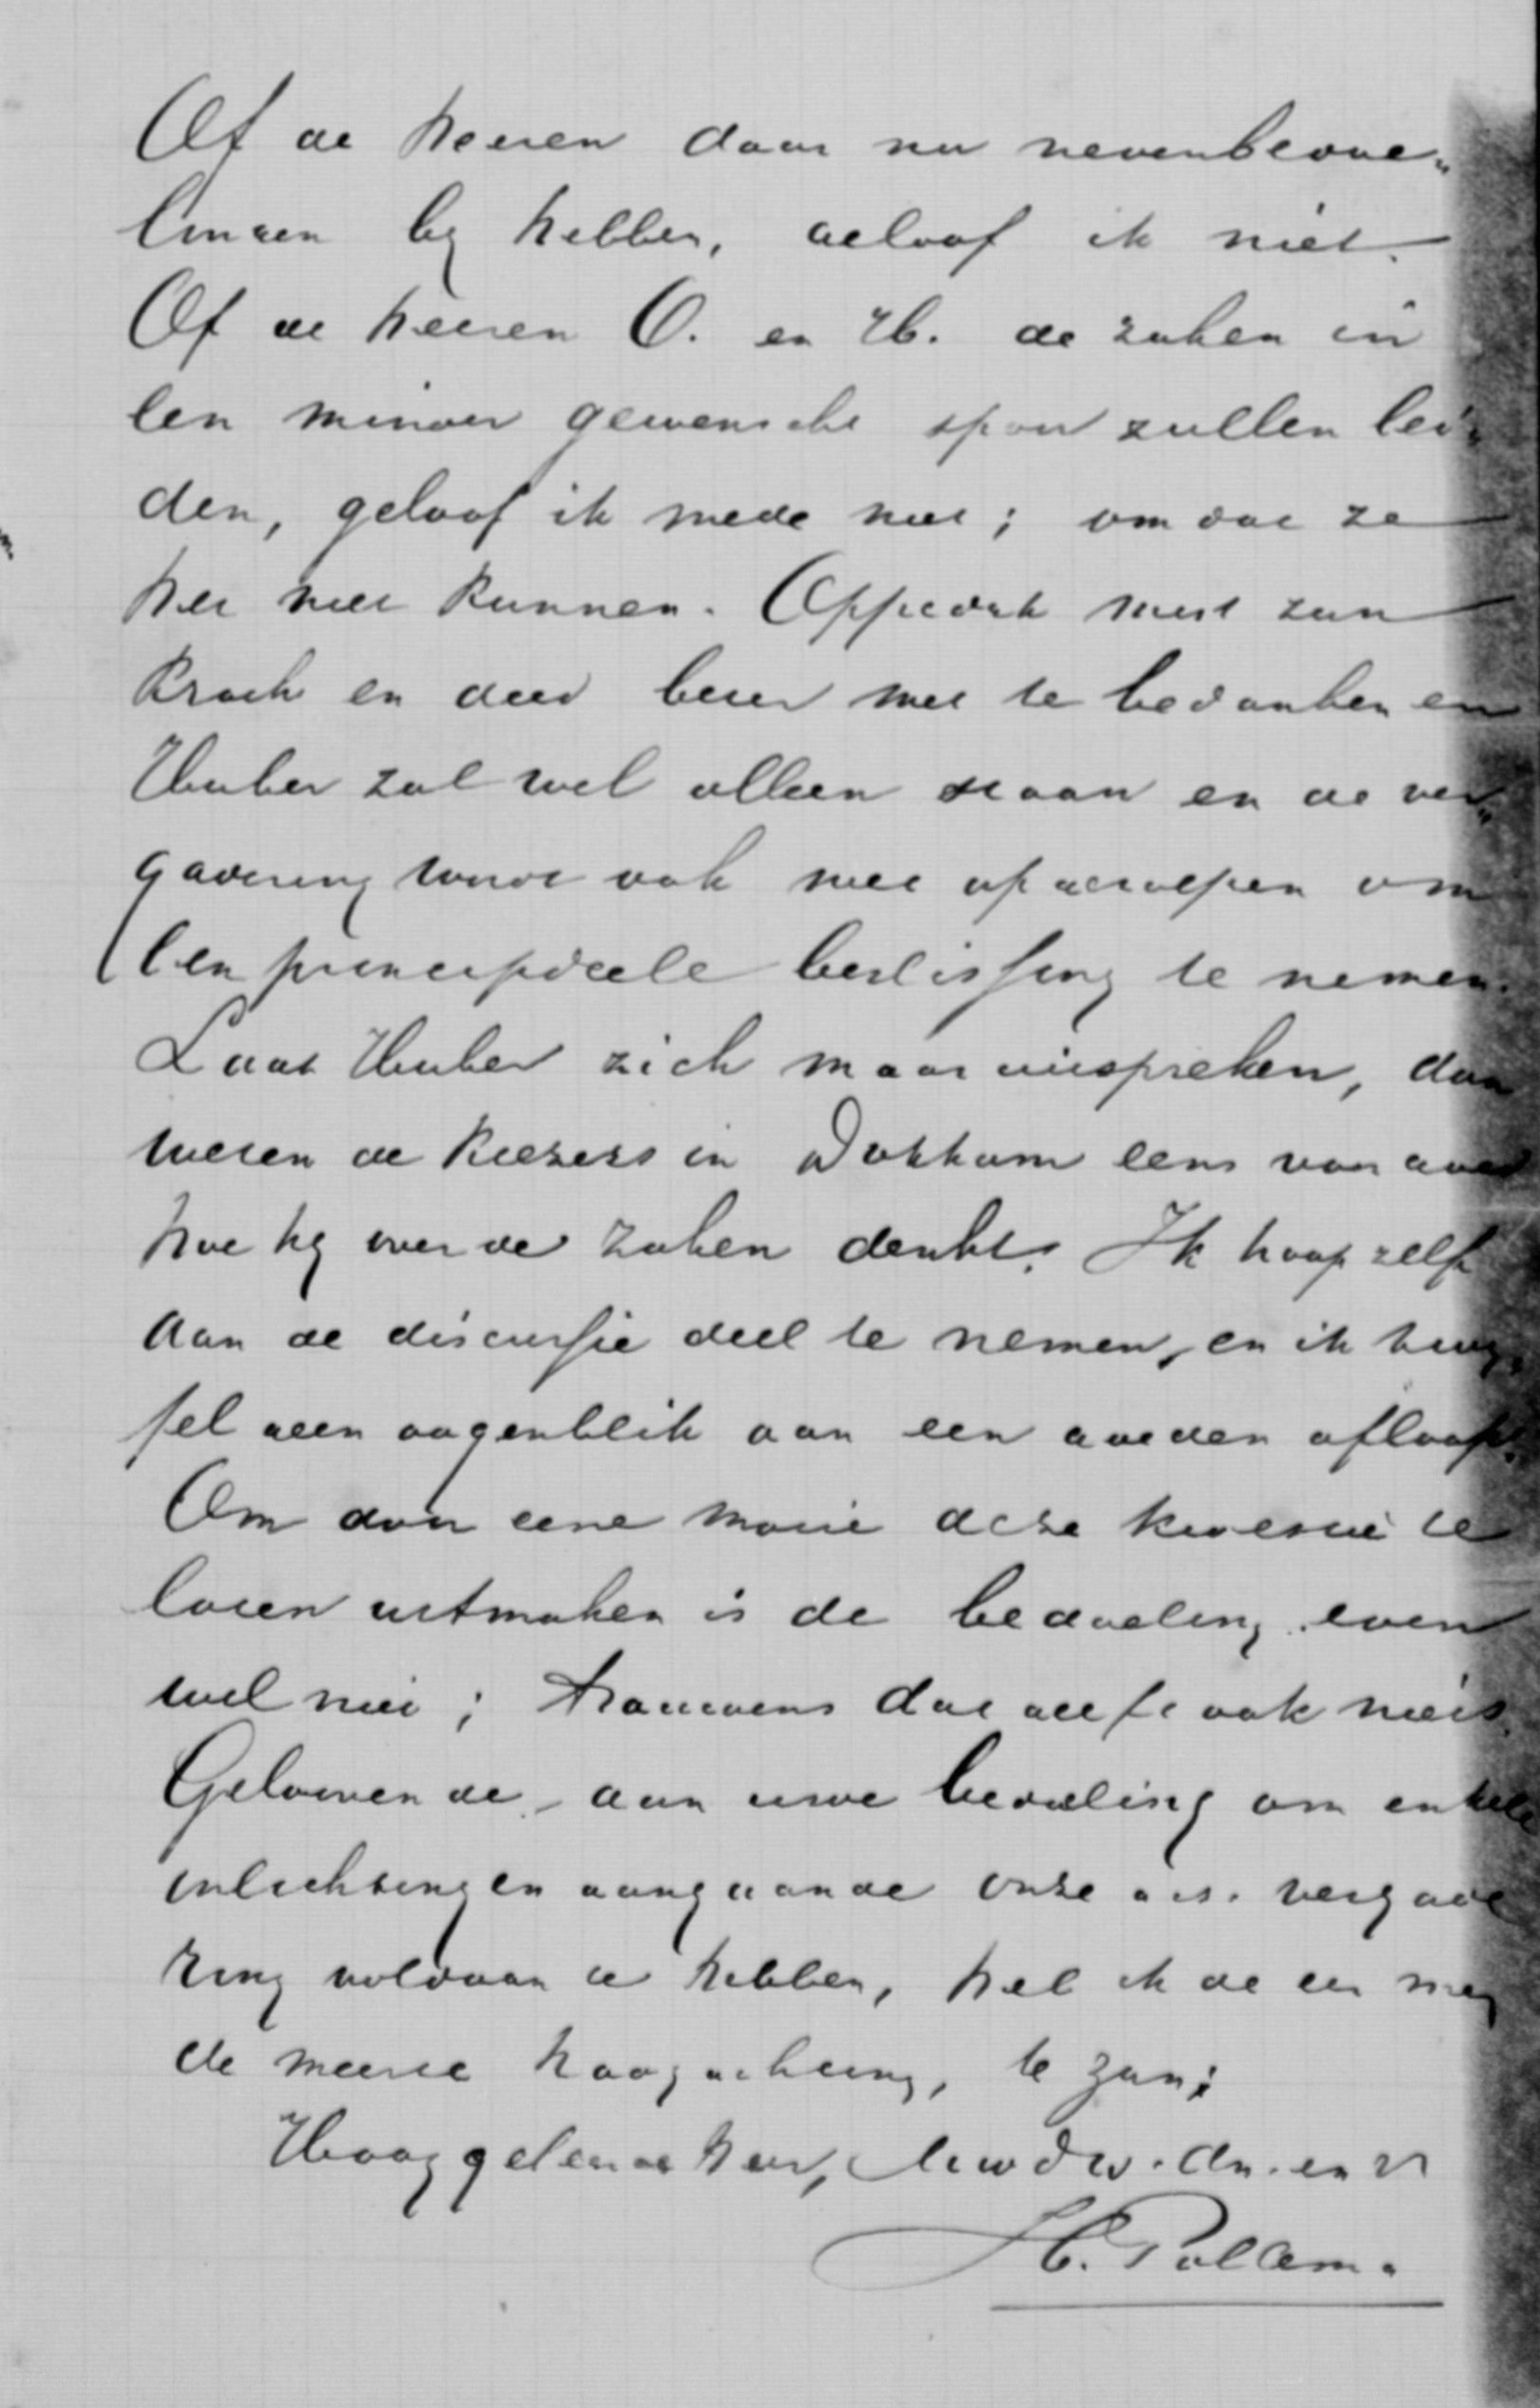 Of de heeren daar nu nevenbedoe„
lingen bij hebben, geloof ik niet.
Of de heeren O. en H. de zaken in
een minder gewenscht spoor zullen lei„
den, geloof ik mede niet; omdat ze
het niet kunnen. Oppedijk mist zijn
kracht en deed beter met te bedanken en
Huber zal wel alleen staan en de ver„
gadering wordt ook niet opgeroepen om
een principiëele beslissing te nemen.
Laat Huber zich maar uitspreken, dan
weten de kiezers in Dokkum eens vooraf
hoe hij over de zaken denkt. Ik hoop zelf
aan de discussie deel te nemen, en ik twij„
fel geen oogenblik aan een goeden afloop.
Om door eene motie deze kwestie te
laten uitmaken is de bedoeling even
wel niet; trouwens dat geeft ook niets.
Geloovende, aan uwe bedoeling om enkele
inlichtingen aangaande onze a.s. vergade
ring voldaan te hebben, heb ik de eer met
de meeste hoogachting, te zijn;
Hooggeleerde heer, Uw dw. dn. en
H. Pollema